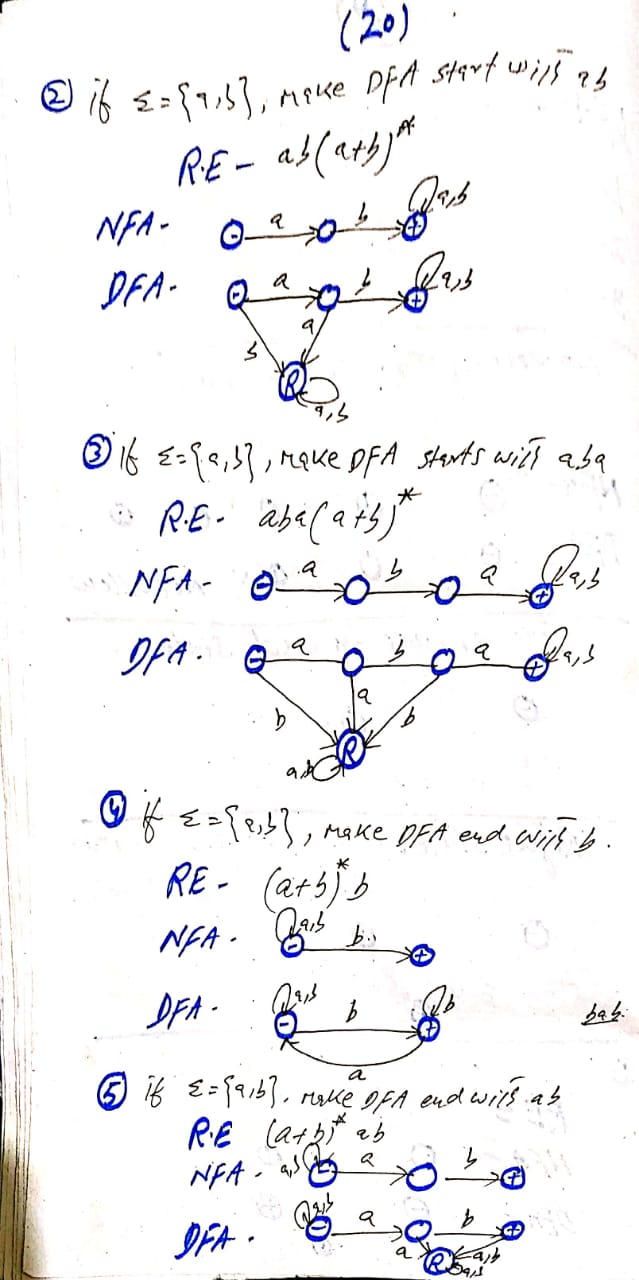 (20)
② if Σ={a,b}, make DFA start with ab
R.E - ab(a+b)*
NFA- - a b + a,b
DFA- - a b + a,b
b a
R
a,b
③ if Σ={a,b}, make DFA starts with aba
R.E - aba(a+b)*
NFA - - a b a + a,b
DFA. - a b a + a,b
b a b
R
a,b
④ if Σ={a,b}, make DFA end with b.
RE - (a+b)* b
NFA. - a,b b +
DFA- - a,b b + b bab.
a
⑤ if Σ={a,b}. make DFA end with ab
R.E (a+b)* ab
NFA - a,b - a b +
DFA. a,b - a b +
a R a,b
a,b